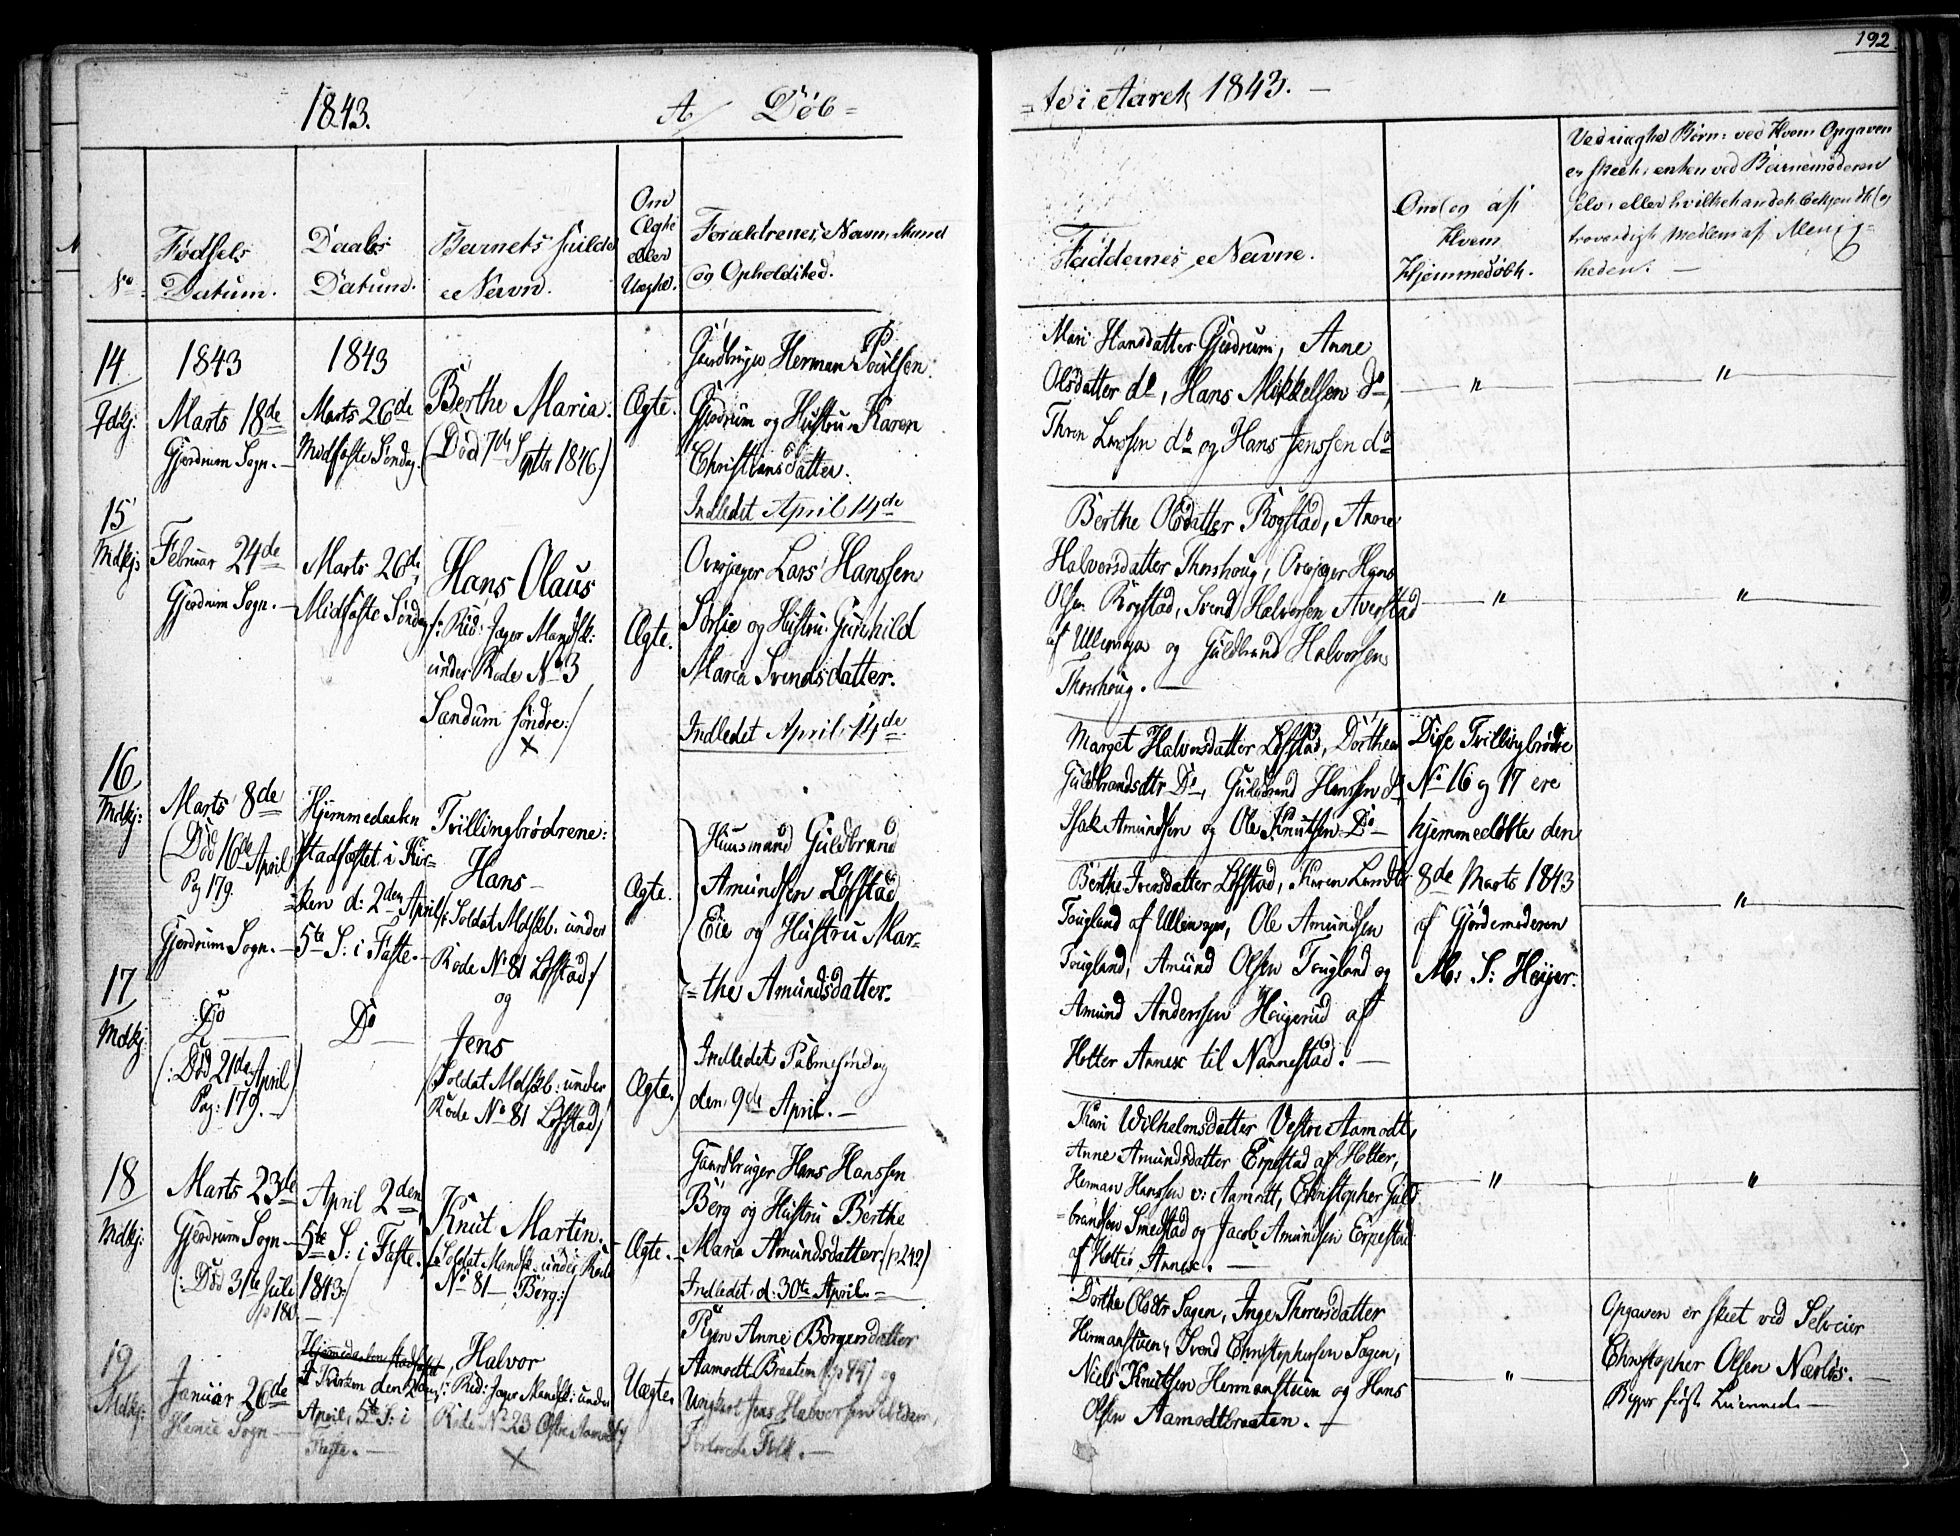 192
1843.
A/ Døb=
=te i Aaret 1843. —
No
Fødsels
Datum.
Daabs
Datum.
Barnets fulde
Navn.
Om
Ægte
eller
Uægte.
Forældrenes Navn, Stand
og Opholdsted.
Faddernes Navne.
Om og af
Hvem
Hjemmedøbt.
Ved uægte Børn: ved Hvem Opgaven
er skeet, enten ved Barnemoderen
selv, eller hvilket andet bekjendt og
troværdigt Medlem af Menig-
heden. —
14
Qvkj:
1843
Marts 18de
Gjerdrum Sogn. —
1843
Marts 26de
Midfaste Søndag.
Berthe Maria.
(Død 7de Septbr 1846.)
Ægte.
Gaardbruger Herman Poulsen
Gjerdrum og Hustru Karen
Christiansdatter.
Indledet April 14de
Mari Hansdatter Gjerdrum, Anne
Olsdatter do, Hans Mikkelsen Do,
Thron Larssen do og Hans Jenssen do
— " —
— " —
15
Mdkj:
Februar 24de
Gjerdrum Sogn. —
Marts 26de
Midfaste Søndag
Hans Olaus
/: Rid: Jæger Mandsk:
under Rode No 3
Sandum søndre:/
X
Ægte.
Overjæger Lars Hanssen
Sørlie og Hustru Gunhild
Maria Svendsdatter.
Indledet April 14de
Berthe Olsdatter Rogstad, Anne
Halvorsdatter Throshoug, Overjæger Hans
Olsen Rogstad, Svend Halvorsen Averstad
af Ullensager og Guldbrand Halvorsen
Throshoug. —
— " —
— " —
16
Mdkj:
Marts 8de
(Død 16de April
Pag 179.
Gjerdrum Sogn. —
Hjemmedaaben
stadfæstet i Kir-
=ken d: 2den April
5te S: i Faste. —
Tvillingbrødrene:
Hans —
/: Soldat Mdskb. under
Rode No 81 Løfstad:/
og
Ægte.
Huusmand Guldbrand
Amundsen Løfstad
Eie og Hustru Mar=
=the Amundsdatter.
Indledet Palmesøndag
den 9de April. —
Marget Halvorsdatter Løfstad, Dorthea
Guldbrandsdtr Do, Guldbrand Hanssen do
Isak Amundsen og Ole Knutsen Do —
Disse Tvillingbrødre
No 16 og 17 ere
hjemmedøbte den
8de Marts 1843
af Gjordemoderen
M: S: Heyer.
— " —
17
Mdkj:
Do
(: Død 21de April)
Pag: 179. —
Do —
Jens
(Soldat Mdskb: under
Rode No 81 Løfstad)
Ægte.
Berthe Iversdatter Løfstad, Karen
Fougland af Ullensager, Ole Amundsen
Fougland, Amund Olsen Fougland og
Amund Anderssen Haugerud af
Holter Annex til Nannestad. —
18
Mdkj:
Marts 23de
Gjerdrum Sogn —
(: Død 31te Juli
p 180. —
April 2den
5te S: i Faste.
1843:/
Knut Martin.
/: Soldat Mandsk. under Rode
No 81 — Berg:/
Ægte. —
Gaardbruger Hans Hanssen
Berg og Hustru Berthe
Maria Amundsdatter. (p 242)
Indledet d: 30te April. —
Kari Wilhelmsdatter Vestre Aamodt,
Anne Amundsdatter Erpestad af Holter,
Herman Hanssen v: Aamodt, Christopher Guld
=brandsen Smedstad og Jacob Amundsen Erpestad
af Holter Annex. —
— " —
— " —
19
Mdkj:
Januar 26de
Sogn —
Hjemmedaaben stadfæstet
i Kirken den 2den
April, 5te S: i
Faste. —
Halvor
/: Rid: Jæger Mandsk: under
Rode No 23 Østre Aamodt:/
X
Uægte.
Pigen Anne Børgersdatter
Aamodt Braaten (p 44) og
Ungkarl Jens Halvorsen
Folk. —
Dorthe Olsdtr Sagen, Inge Thoresdatter
Hermanstuen, Svend Christophersen Sagen,
Niels Knutsen Hermanstuen og Hans
Olsen Aamodtbraaten. —
— " —
Opgaven er skeet ved Selveier
Christopher Olsen Nærløs. —